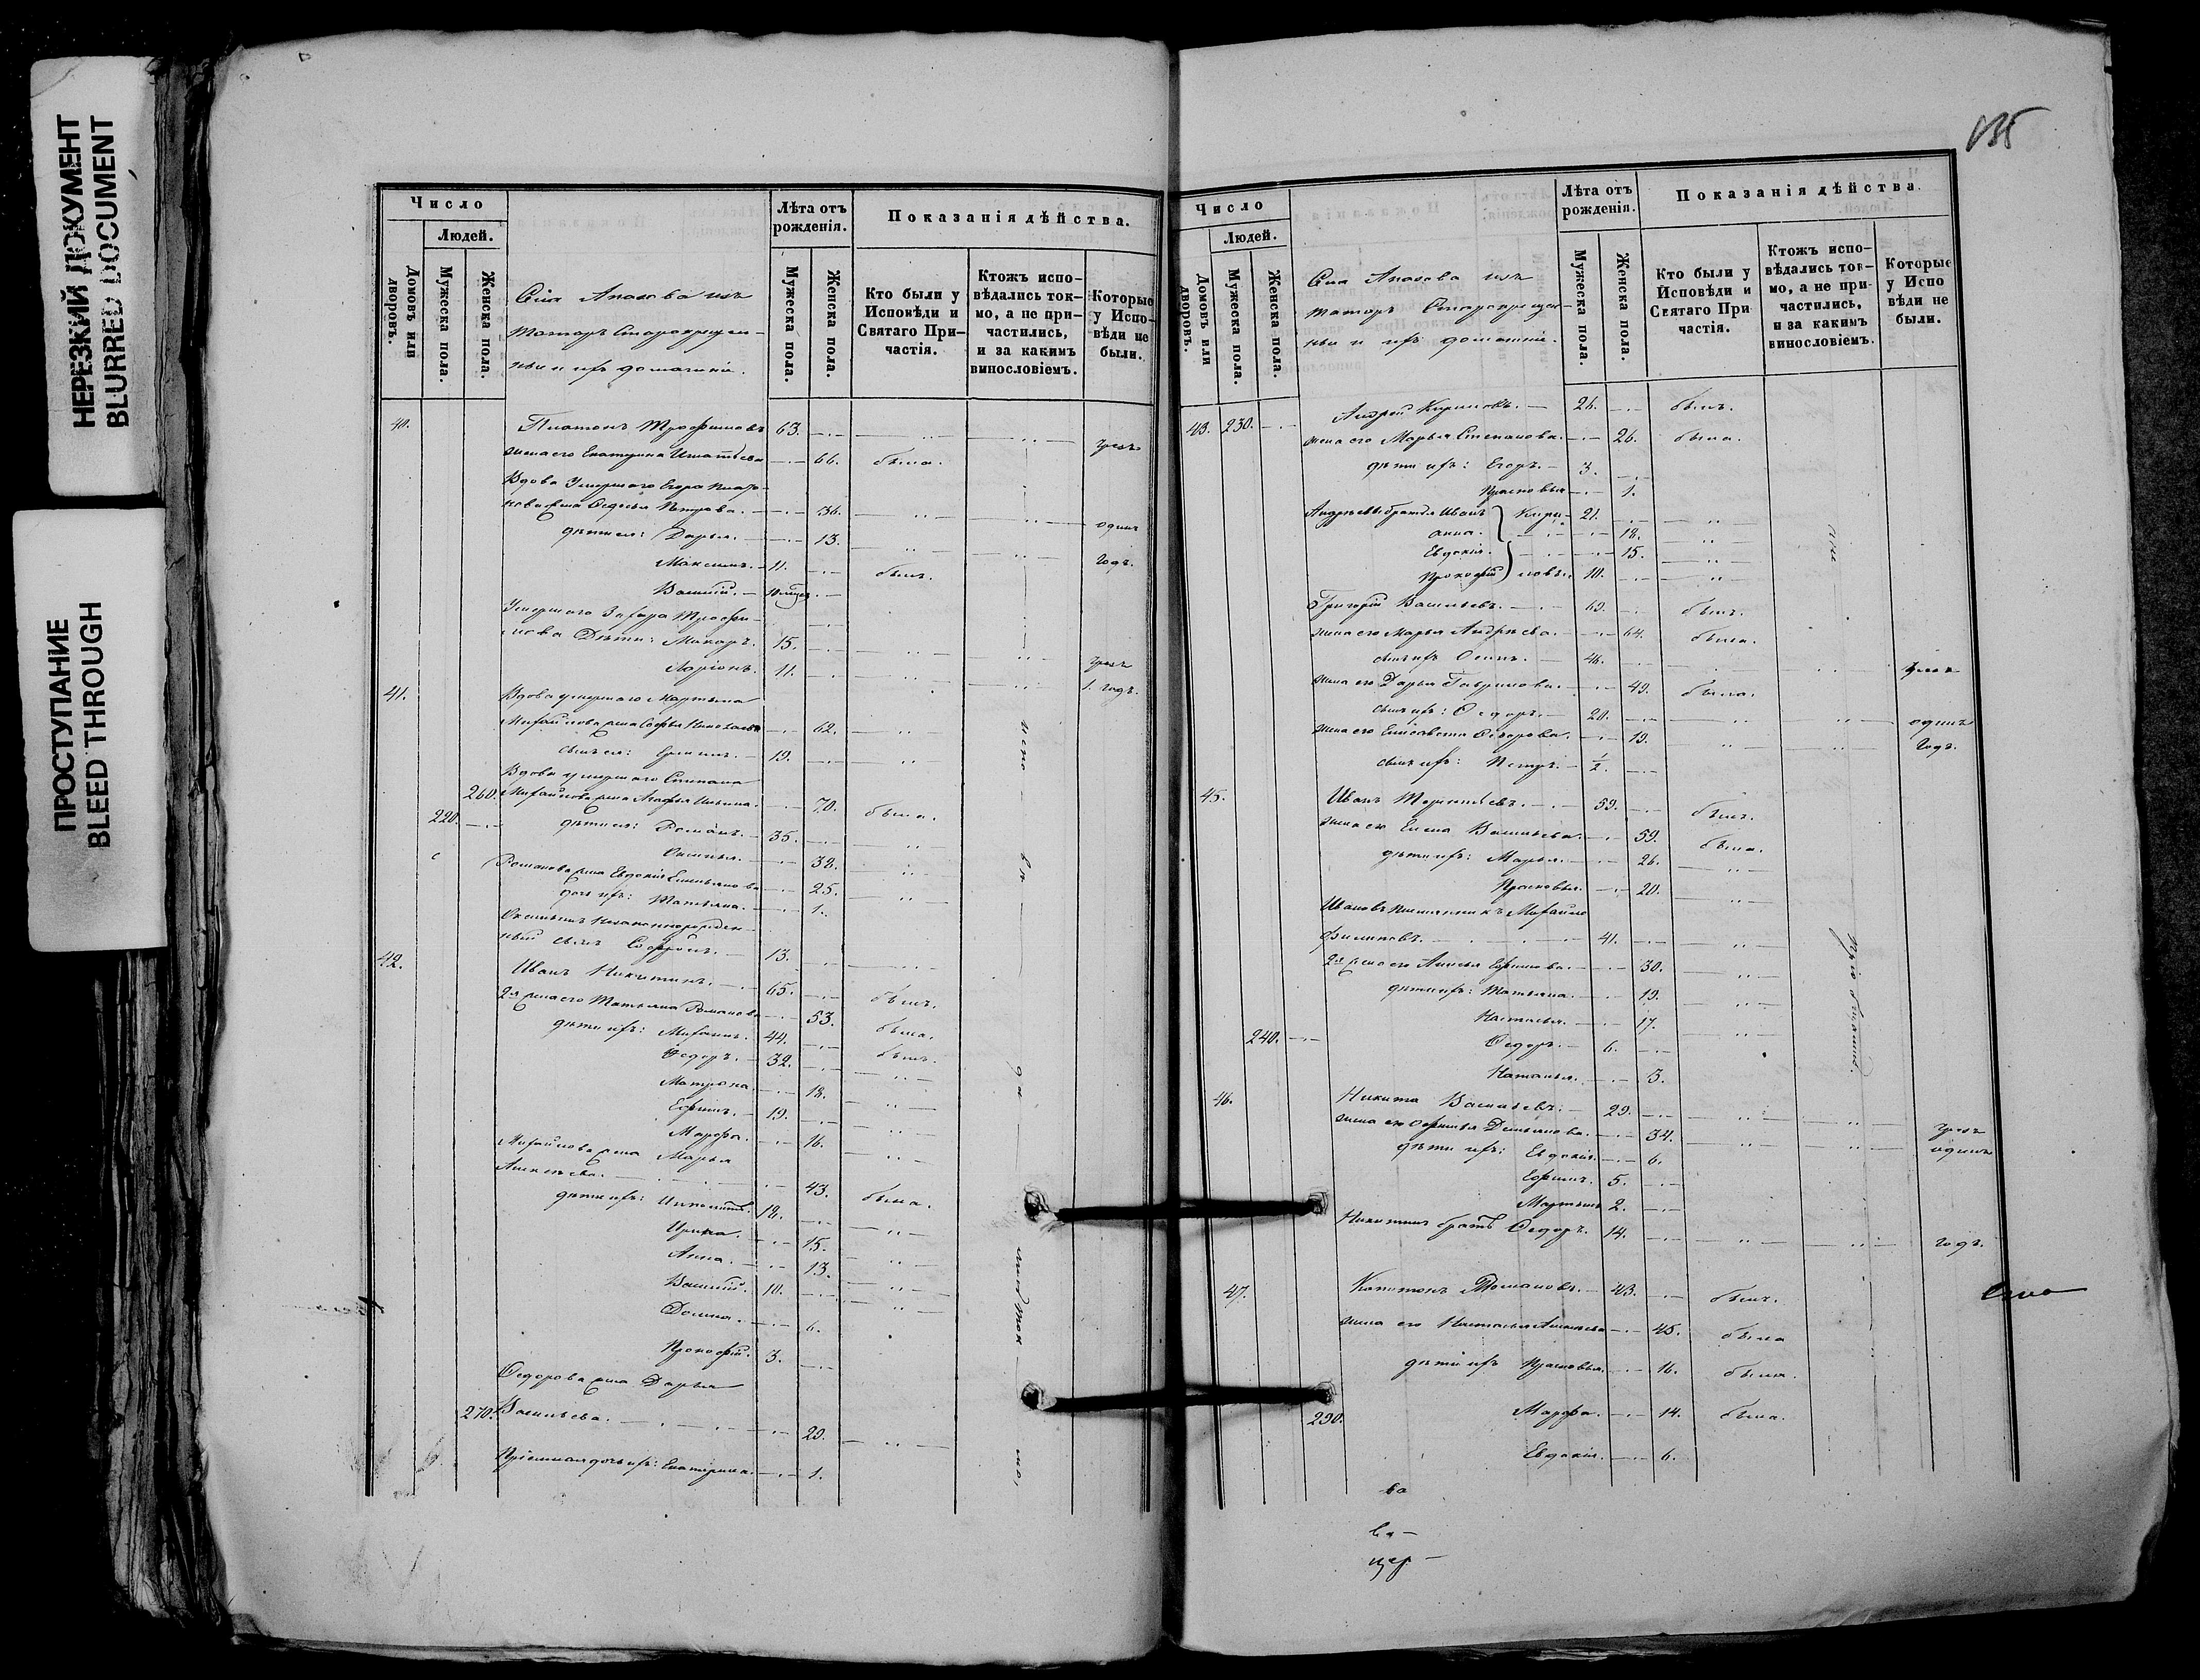 НЕРЕЗКИЙ ДОКУМЕНТ
BLURRED DOCUMENT
ПРОСТУПАНИЕ
BLEED THROUGH
Число
Людей.
Домовъ или дворовъ.
Мужеска пола.
Женска пола.
Села Апазова изъ
татаръ Старокрещен-
ныи и ихъ домашніи.
Лѣта отъ рожденія.
Мужеска пола.
Женска пола.
Показанія дѣйства.
Кто были у Исповѣди и Святаго При-частія.
Ктожъ испо-вѣдались ток-мо, а не при-частились, и за какимъ винословіемъ.
Которые у Испо-вѣди не были.
40. Платонъ Трофимовъ 63.
жена его Екатерина Игнатьева 66. была.
Вдова Умершаго Егора Плато-
нова жена Федосья Петрова. 36.
дѣти ея: Дарья. 13.
Максимъ. 11. былъ.
Василій. 10
Умершаго Захара Трофи-
мова Дѣти: Макаръ. 15.
Ларіонъ. 11.
1. годъ.
41. Вдова умершаго Мартына
Михайлова жена Софья Николаева 62.
сынъ ея: 19.
Вдова умершаго Степана
260. Михайлова жена Агафья Ильина. 70. была.
220. дѣти ея: Романъ. 35.
38.
Романова жена Евдокія Емельянова 25.
дочь ихъ: Татьяна. 1.
незаконнорожден-
ный сынъ Софронъ. 13.
42. Иванъ Никитинъ. 65. былъ.
2я жена его Татьяна Романова 53. была.
дѣти ихъ: Михаилъ. 44. былъ.
Федоръ. 32.
Матрона 18.
Ефимъ. 19.
Марфа. 16.
Михайлова жена Марья
Алексѣева. 43. была.
дѣти ихъ: Ипполитъ. 18.
Ирина. 15.
Анна. 13.
Василій. 10.
Домна. 6.
Прокофій. 3.
Федорова жена Дарья
270. Васильева. 29.
Пріемная дочь ихъ: Екатерина. 1.
одинъ
годъ.
135
Число
Людей.
Домовъ или дворовъ.
Мужеска пола.
Женска пола.
Села Апазова изъ
татаръ Старокрещен-
ныи и ихъ домашніи.
Лѣта отъ рожденія.
Мужеска пола.
Женска пола.
Показанія дѣйства.
Кто были у Исповѣди и Святаго При частія.
Ктожъ испо-вѣдались ток-мо, а не при-частились, и за какимъ винословіемъ.
Которые у Испо вѣди не были.
43. 230. Андрей Кириловъ. 26. былъ.
жена его Марья Степанова. 26. была.
дѣти ихъ: Егоръ. 3.
Прасковья 1.
Андреевы братья Иванъ Кири- 21.
Анна. 18.
Евдокія. 15.
Прокофій ловы. 10.
Григорій Васильевъ. 69. былъ.
жена его Марья Андреева. 64. была.
сынъ ихъ Осипъ. 46.
жена его Дарья Гаврилова. 49. была.
сынъ ихъ: Федоръ. 20. одинъ
жена его Елисавета Федорова. 19. годъ.
сынъ ихъ: Петръ. 1/2.
45. Иванъ Терентьевъ. 59. былъ.
жена его Елена Васильева. 59. была.
дѣти ихъ: Марья. 26.
Прасковья. 20.
Ивановъ племянникъ Михайло
Филиповъ. 41.
2я жена его Ефимова. 30.
дѣти ихъ: Татьяна. 19.
Настасья. 17.
240. Федоръ. 6.
Наталья. 3.
46. Никита Васильевъ. 29.
жена его Софья Демьянова. 34. одинъ
дѣти ихъ: Евдокія. 6.
Ефимъ. 5.
Мартынъ 2.
Никитинъ братъ Федоръ. 14. годъ.
47. Капитонъ Романовъ. 43. былъ.
жена его Настасья Алексѣева 45. была
дѣти ихъ Прасковья. 16. была.
290. Марфа. 14. была.
Евдокія. 6.